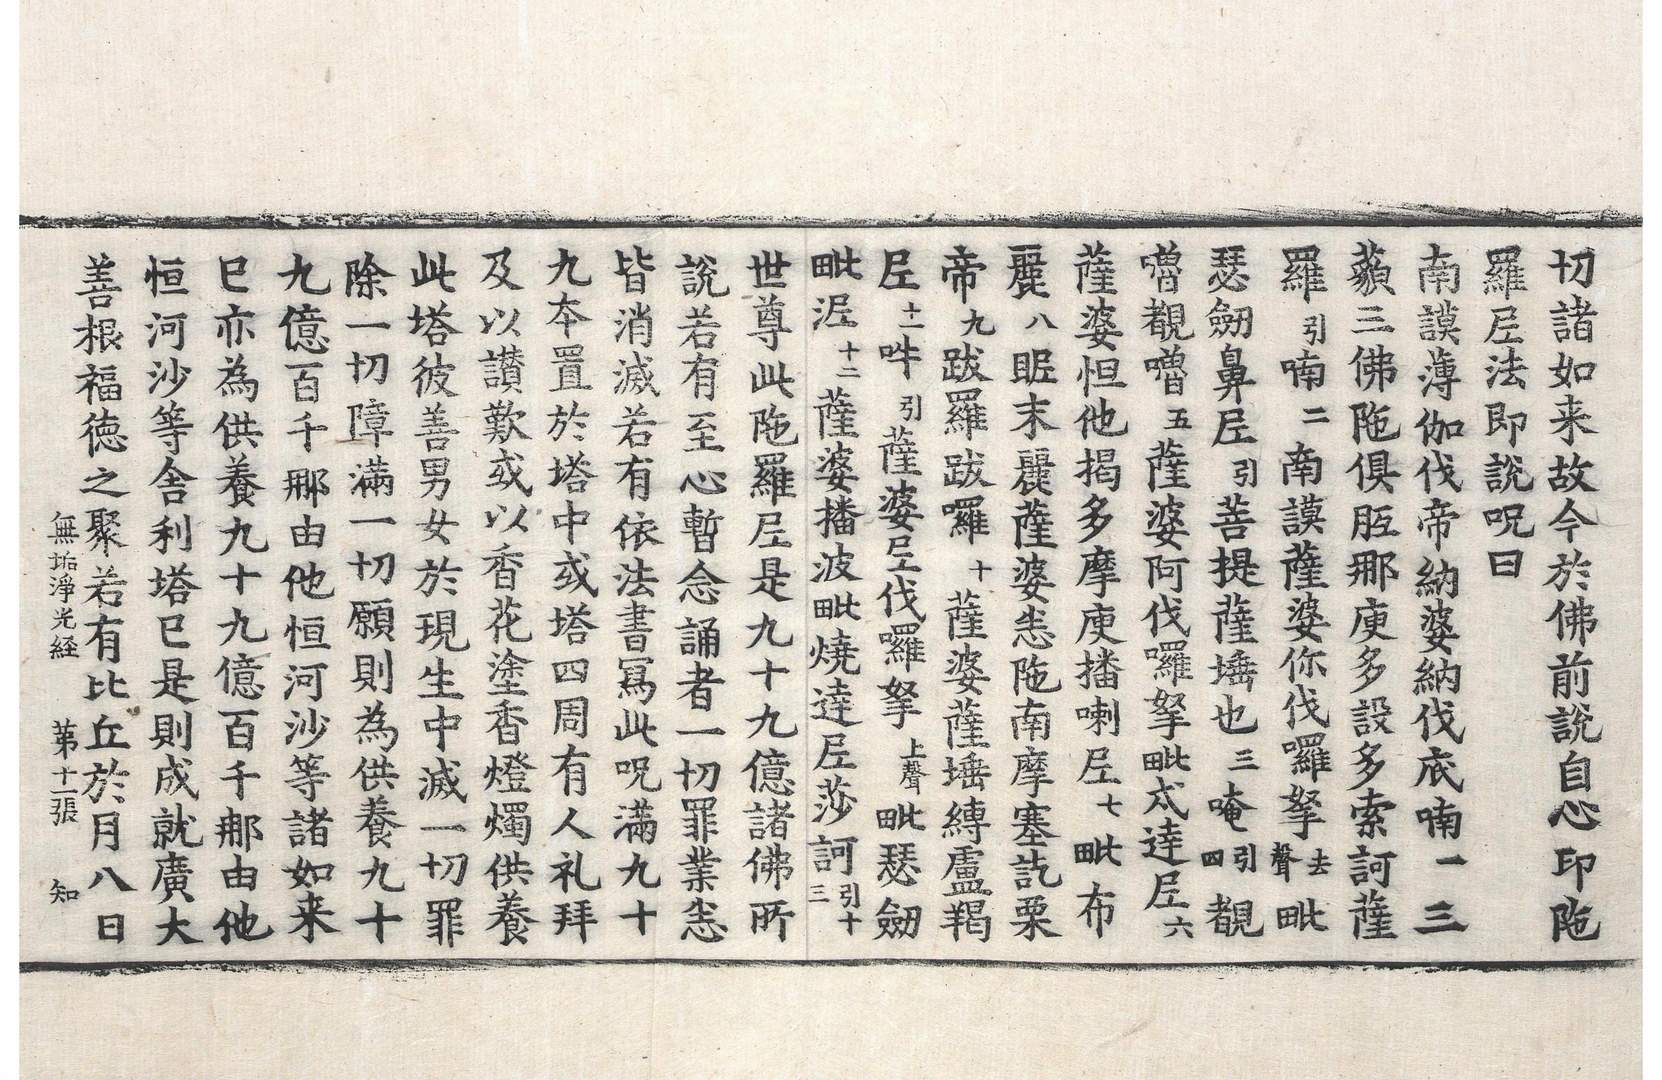 切諸如来故今於佛前說自心印陁
羅𡰱法即說呪曰
南謨薄伽伐帝納婆納伐底喃一三
藐三佛陁俱胝那庾多設多索訶薩
羅引喃二南謨薩婆你伐囉拏去聲毗
瑟劒鼻𡰱引菩提薩埵也三唵引四覩
嚕覩嚕五薩婆阿伐囉拏毗戍達𡰱六
薩婆怛他揭多摩庾播喇𡰱七毗布
麗八昵末麗薩婆悉陁南摩塞訖栗
帝九跋羅跋囉十薩婆薩埵縛盧羯
𡰱十一吽引薩婆𡰱伐囉拏上聲毗瑟劒
毗泥十二薩婆播波毗燒達𡰱莎訶引十三
世尊此陁羅𡰱是九十九億諸佛所
說若有至心暫念誦者一切罪業悉
皆消滅若有依法書寫此呪滿九十
九本置於塔中或塔四周有人礼拜
及以讃歎或以香花塗香燈燭供養
此塔彼善男女於現生中滅一切罪
除一切障滿一切願則為供養九十
九億百千那由他恒河沙等諸如来
已亦為供養九十九億百千那由他
恒河沙等舍利塔已是則成就廣大
善根福德之聚若有比丘於月八日
無垢淨光経 第十一張 知